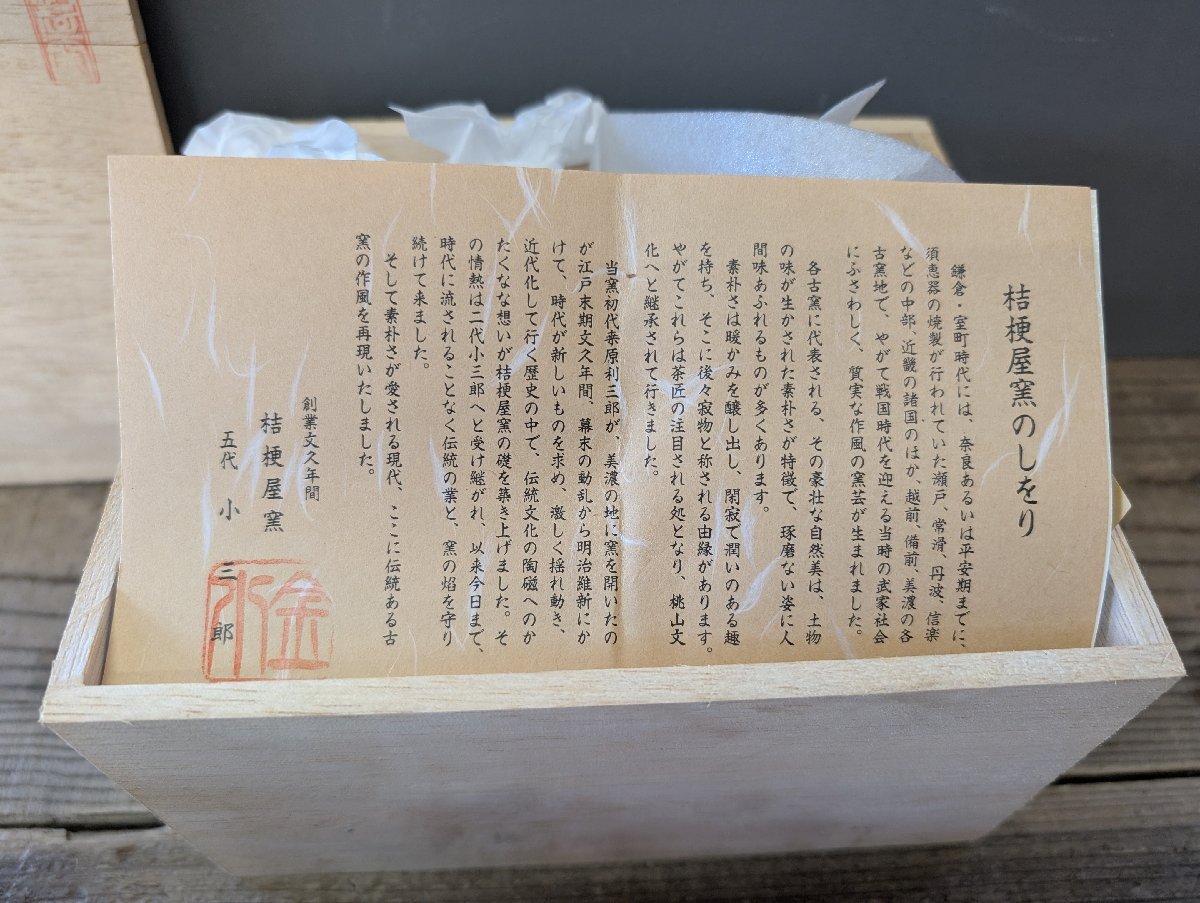 桔梗屋窯のしをり
鎌倉・室町時代には、奈良あるいは平安期までに、
須恵器の焼製が行われていた瀬戸、常滑、丹波、信楽
などの中部、近畿の諸国のほか、越前、備前、美濃の各
古窯地で、やがて戦国時代を迎える当時の武家社会
にふさわしく、質実な作風の窯芸が生まれました。
各古窯に代表される、その豪壮な自然美は、土物
の味が生かされた素朴さが特徴で、琢磨ない姿に人
間味あふれるものが多くあります。
素朴さは暖かみを醸し出し、閑寂で潤いのある趣
を持ち、そこに後々寂物と称される由縁があります。
やがてこれらは茶匠の注目される処となり、桃山文
化へと継承されて行きました。
当窯初代来原利三郎が、美濃の地に窯を開いたの
が江戸末期文久年間、幕末の動乱から明治維新にか
けて、時代が新しいものを求め、激しく揺れ動き、
近代化して行く歴史の中で、伝統文化の陶磁へのか
たくなな想いが桔梗屋窯の礎を築き上げました。そ
の情熱は二代小三郎へと受け継がれ、以来今日まで、
時代に流されることなく伝統の業と、窯の焰を守り
続けて来ました。
そして素朴さが愛される現代、ここに伝統ある古
窯の作風を再現いたしました。
創業文久年間
桔梗屋窯
五代 小三郎